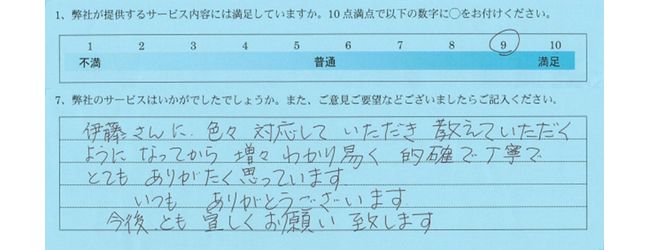 1、弊社が提供するサービス内容には満足していますか。10点満点で以下の数字に○をお付けください。
1 2 3 4 5 6 7 8 9 10
不満 普通 満足
7、弊社のサービスはいかがでしたでしょうか。また、ご意見ご要望などございましたらご記入ください。
伊藤さんに、色々 対応して いただき 教えていただく
ように なってから 増々 わかり易く 的確で丁寧で
とても ありがたく思っています
いつも ありがとうございます
今後、とも 宜しく お願い 致します